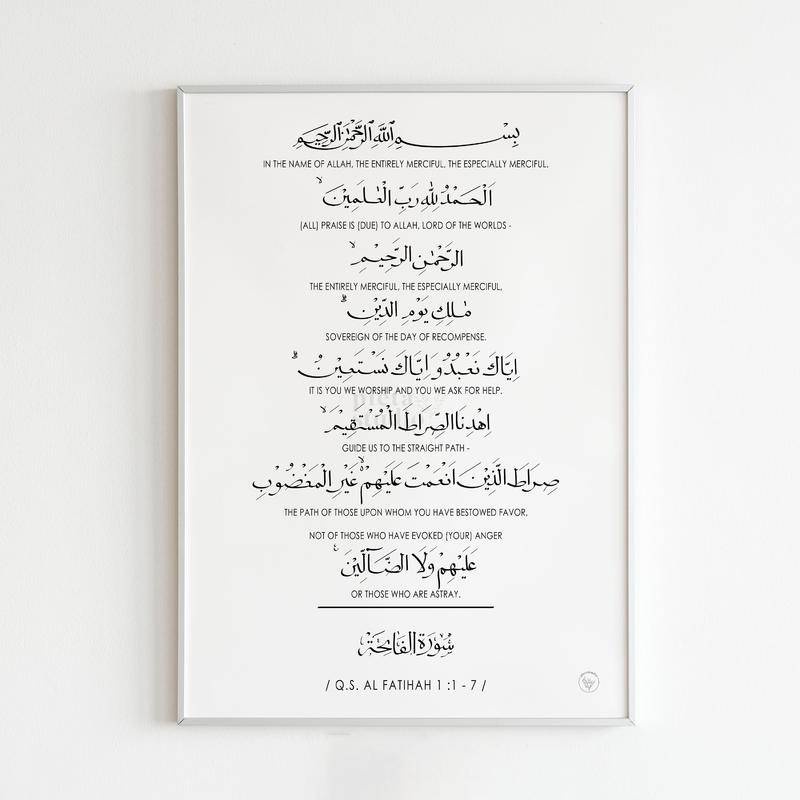 بِسْمِ اللَّهِ الرَّحْمَٰنِ الرَّحِيمِ
IN THE NAME OF ALLAH, THE ENTIRELY MERCIFUL, THE ESPECIALLY MERCIFUL.
اَلْحَمْدُ لِلّٰهِ رَبِّ الْعٰلَمِيْنَۙ
(ALL) PRAISE IS (DUE) TO ALLAH, LORD OF THE WORLDS -
الرَّحْمٰنِ الرَّحِيْمِۙ
THE ENTIRELY MERCIFUL, THE ESPECIALLY MERCIFUL,
مٰلِكِ يَوْمِ الدِّيْنِۗ
SOVEREIGN OF THE DAY OF RECOMPENSE.
اِيَّاكَ نَعْبُدُ وَاِيَّاكَ نَسْتَعِيْنُۗ
IT IS YOU WE WORSHIP AND YOU WE ASK FOR HELP.
اِهْدِنَا الصِّرَاطَ الْمُسْتَقِيْمَۙ
GUIDE US TO THE STRAIGHT PATH -
صِرَاطَ الَّذِيْنَ اَنْعَمْتَ عَلَيْهِمْ ەۙ غَيْرِ الْمَغْضُوْبِ
THE PATH OF THOSE UPON WHOM YOU HAVE BESTOWED FAVOR,
NOT OF THOSE WHO HAVE EVOKED (YOUR) ANGER
عَلَيْهِمْ وَلَا الضَّاۤلِّيْنَ
OR THOSE WHO ARE ASTRAY.
سُوْرَةُ الْفَاتِحَةِ
/ Q.S. AL FATIHAH 1 :1 - 7 /